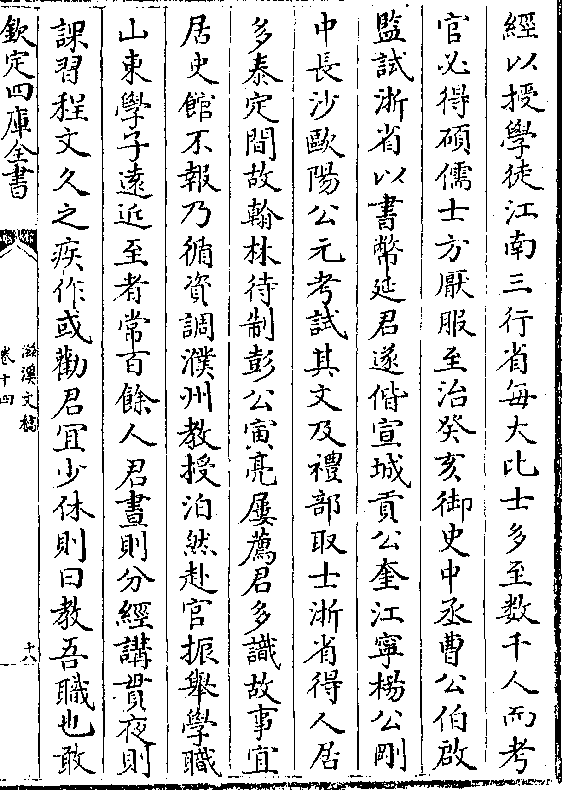 經以授學徒江南三行省每大比士多至數千人而考
官必得碩儒士方厭服至治癸亥御史中丞曹公伯啟
監試浙省以書幣延君遂偕宣城貢公奎江寧楊公剛
中長沙歐陽公元考試其文及禮部取士浙省得人居
多泰定間故翰林待制彭公寅亮屢薦君多識故事宜
居史館不報乃循資調濮州教授泊然赴官振舉學職
山東學子遠近至者常百餘人君晝則分經講貫夜則
課習程文久之疾作或勸君宜少休則曰教吾職也敢
欽定四庫全書
滋溪文稿
卷十四
十八